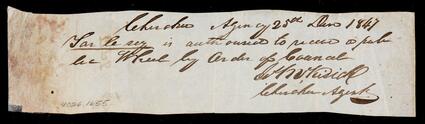 Cherokee Agency 25th Dec 1847
is authorised to receive a pub
lic Wheel by Order of Council
Cherokee Agent
4026.1655